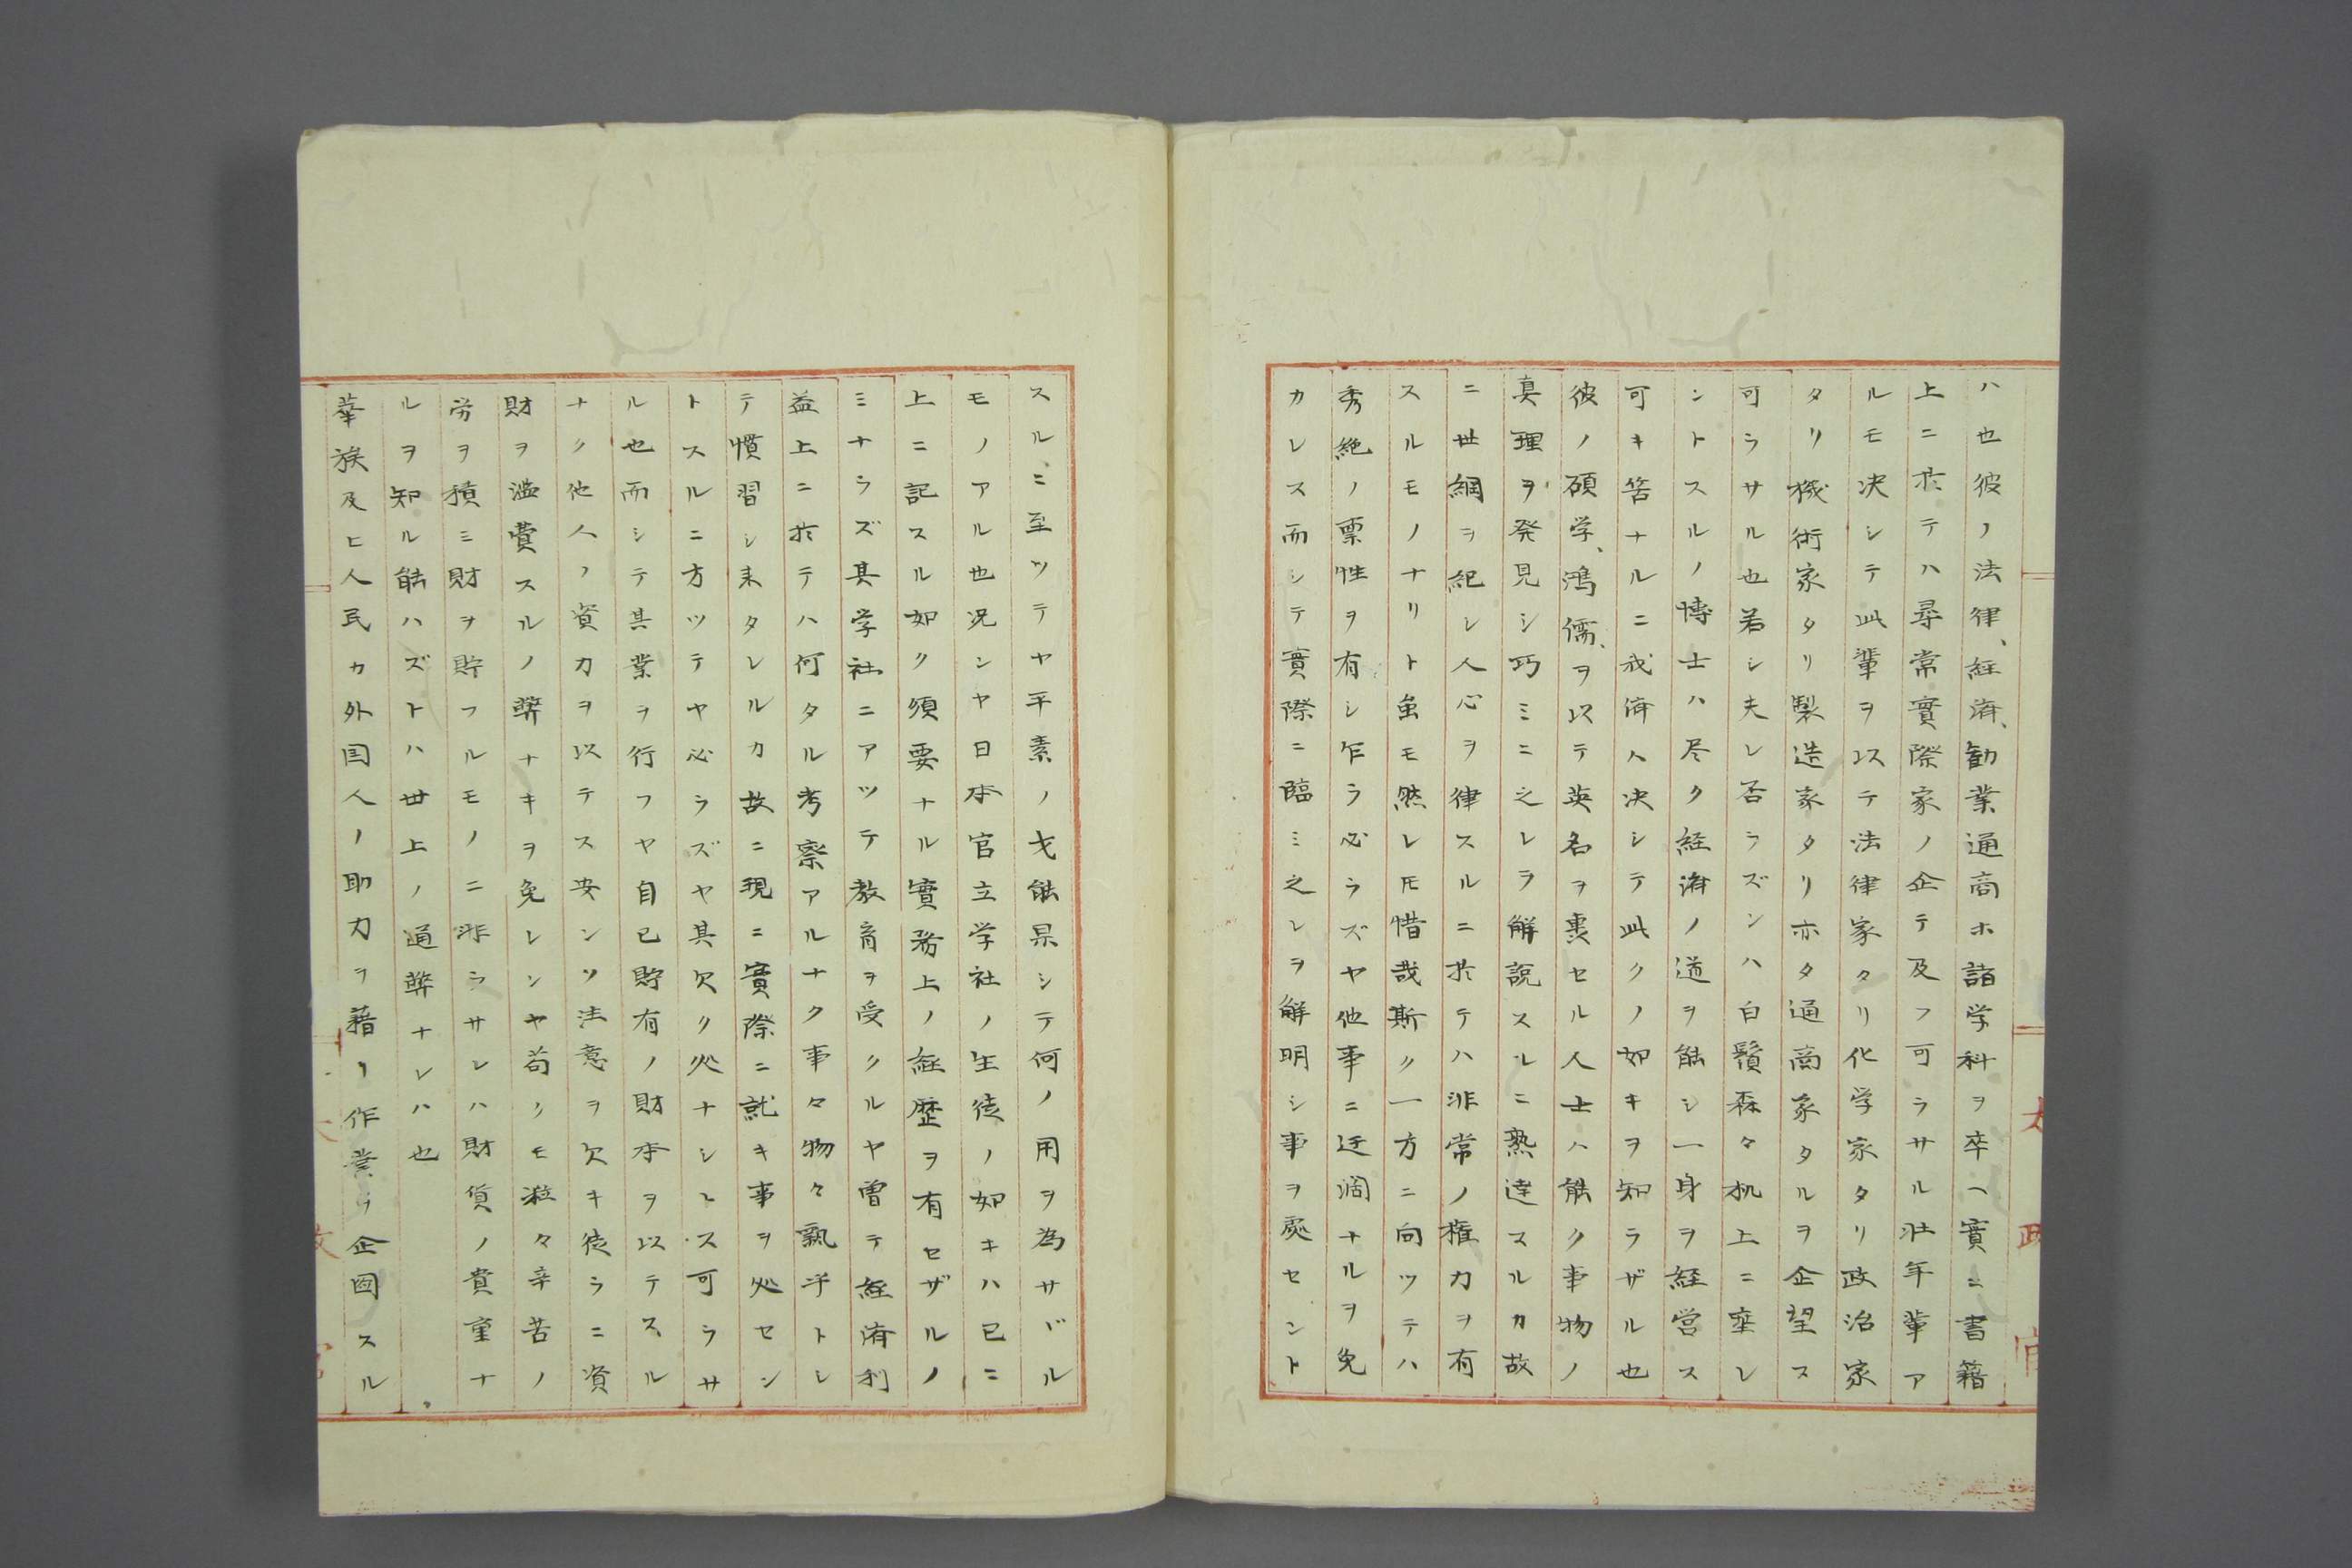 ハ也彼ノ法律、経済、勧業通商ホ諸学科ヲ卒ヘ實ニ書籍
上ニ於テハ尋常實際家ノ企テ及フ可ラサル壮年輩ア
ルモ决シテ此輩ヲ以テ法律家タリ化学家タリ政治家
タリ機術家タリ製造家タリ亦タ通商家タルヲ企望ス
可ラサル也若シ夫レ否ラズンハ白鬚森々机上ニ座シ
ントスルノ博士ハ尽ク経済ノ道ヲ能シ一身ヲ経営ス
可キ筈ナルニ我儕ハ决シテ此クノ如キヲ知ラザル也
彼ノ碩学、鴻儒、ヲ以テ英名ヲ褁セル人士ハ能ク事物ノ
真理ヲ発見シ巧ミニ之レヲ解説スルニ熟達スルカ故
ニ世綱ヲ紀シ人心ヲ律スルニ於テハ非常ノ権力ヲ有
スルモノナリト虽モ然レ𪜈惜哉斯ク一方ニ向ツテハ
秀絶ノ禀性ヲ有シ乍ラ必ラズヤ他事ニ迂濶ナルヲ免
カレス而シテ實際ニ臨ミ之レヲ解明シ事ヲ處セント
スルニ至ツテヤ平素ノ才能果シテ何ノ用ヲ為サバル
モノアル也况ンヤ日本官立学社ノ生徒ノ如キハ已ニ
上ニ記スル如ク須要ナル實務上ノ経歴ヲ有セザルノ
ミナラズ其学社ニアツテ教育ヲ受クルヤ曽テ経済利
益上ニ於テハ何タル考察アルナク事々物々孰乎トシ
テ慣習シ来タレルカ故ニ現ニ實際ニ就キ事ヲ処セン
トスルニ方ツテヤ必ラズヤ其欠ク処ナシトス可ラサ
ル也而シテ其業ヲ行フヤ自己貯有ノ財本ヲ以テスル
ナク他人ノ資力ヲ以テス安ンソ注意ヲ欠キ徒ラニ資
財ヲ濫費スルノ弊ナキヲ免レンヤ苟クモ粒々辛苦ノ
労ヲ積ミ財ヲ貯フルモノニ非ラサレハ財貨ノ貴重ナ
ルヲ知ル能ハズトハ世上ノ通弊ナレハ也
華族及ヒ人民カ外国人ノ助力ヲ藉リ作業ヲ企圖スル
太政官